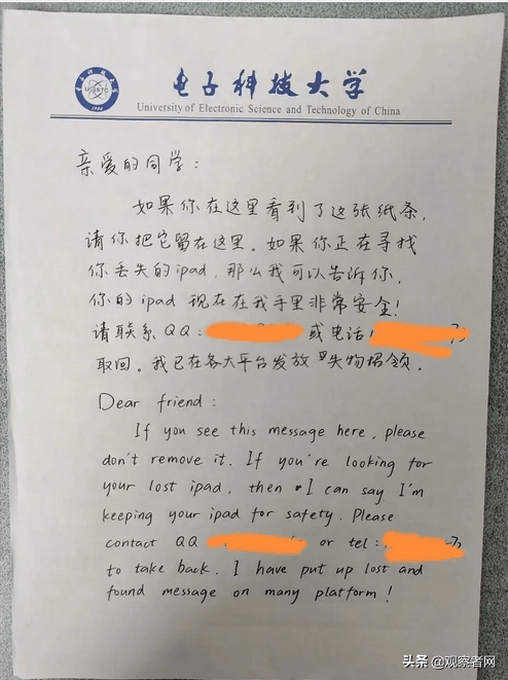 电子科技大学
University of Electronic Science and Technology of China
亲爱的同学：
如果你在这里看到了这张纸条，
请你把它留在这里。如果你正在寻找
你丢失的ipad，那么我可以告诉你，
你的ipad 现在在我手里非常安全！
请联系QQ： 或电话：
取回。我已在各大平台发放"失物招领。
Dear friend：
If you see this message here, please
don't remove it. If you're looking for
your lost ipad, then I can say I'm
keeping your ipad for safety. Please
contact QQ or tel：
to take back. I have put up lost and
found message on many platform！
头条 @观察者网